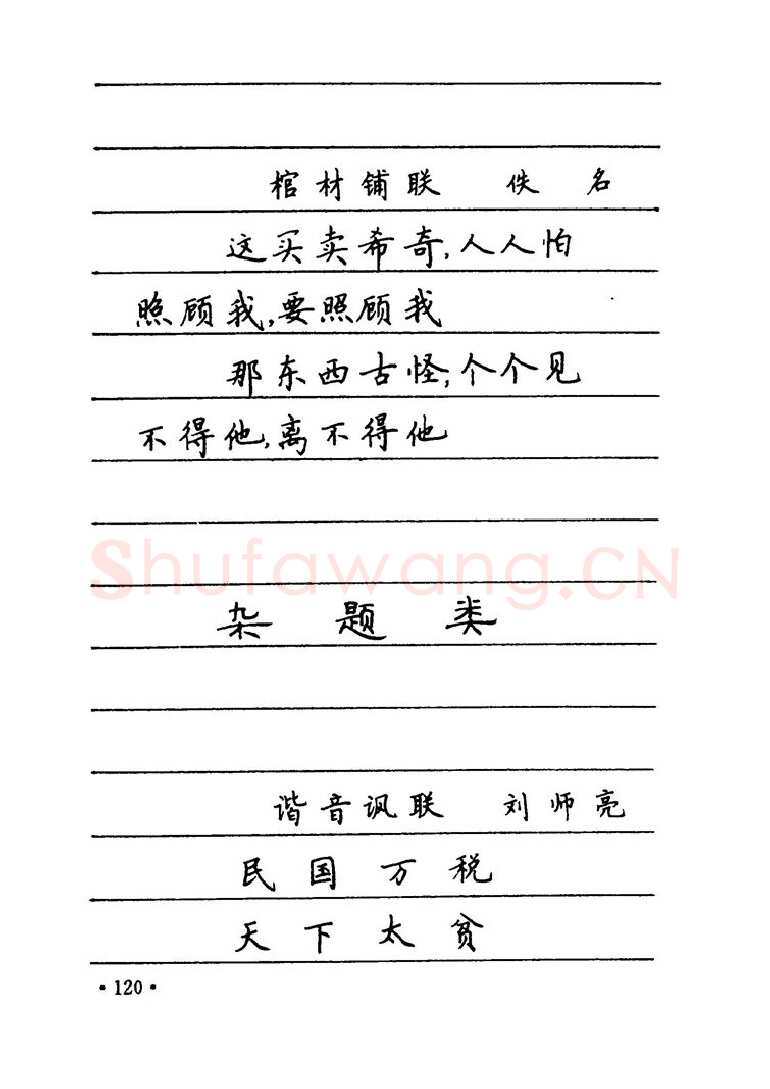 棺材铺联 佚名
这买卖希奇,人人怕
照顾我,要照顾我
那东西古怪,个个见
不得他,离不得他
Shufawang.CN
杂题类
谐音讽联 刘师亮
民国万税
天下太贫
·120·